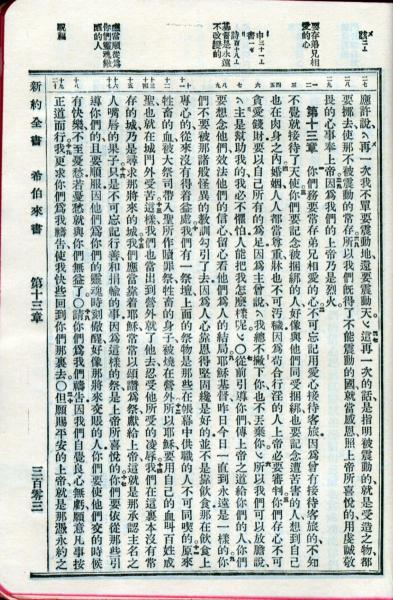 應許說、再一次我不單要震動地還要震動天、這再一次的話是指明被震動的就是受造之物都
要挪去使那不被震動的常存所以我們既得了不能震動的國就當感恩照上帝所喜悅的用虔誠敬
畏的心事奉上帝因為我們的上帝乃是烈火
要存弟兄相愛的心
第十三章 你們務要常存弟兄相愛的心不可忘記用愛心接待客旅因為曾有接待客旅的不知
不覺就接待了天使你們要記念被捆綁的人好像與他們同受捆綁也要記念遭苦害的人想到自己
也在肉身之內婚姻人人都當尊重牀也不可污穢因為苟合行淫的人上帝必要審判你們存心不可
貪愛錢財要以自己所有的為足因為主曾說我總不撇下你也不丟棄你所以我們可以放膽說
主是幫助我的我必不懼怕人能把我怎麼樣呢○從前引導你們傳上帝之道給你們的人你們
基督是永遠不改變的
要想念他們效法他們的信心留心看他們為人的結局耶穌基督昨日今日一直到永遠是一樣的你
們不要被那諸般怪異的教訓勾引了去因為人心靠恩得堅固纔是好的並不是靠飲食那在飲食上
專心的從來沒有得着益處我們有一祭壇上面的祭物是那些在帳幕中供職的人不可同喫的原來
牲畜的血被大祭司帶入聖所作贖罪祭牲畜的身子被燒在營外所以耶穌要用自己的血叫百姓成
聖也就在城門外受苦這樣我們也當出到營外就了他去忍受他所受的凌辱我們在這裏本沒有常
存的城乃是尋求那將來的城我們應當靠着耶穌常常以頌讚為祭獻給上帝這就是那承認主名之
人嘴唇的果子只是不可忘記行善和捐輸的事因為這樣的祭是上帝所喜悅的你們要依從那些引
導你們的且要順服因他們為你們的靈魂時刻儆醒好像那將來交賬的人你們要使他們交的時候
有快樂不至憂愁若憂愁就與你們無益了○請你們為我們禱告因我們自覺良心無虧願意凡事按
正道而行我更求你們為我禱告使我快些回到你們那裏去○但願賜平安的上帝就是那憑永約之
祝福
新約全書 希伯來書 第十三章 三百零三